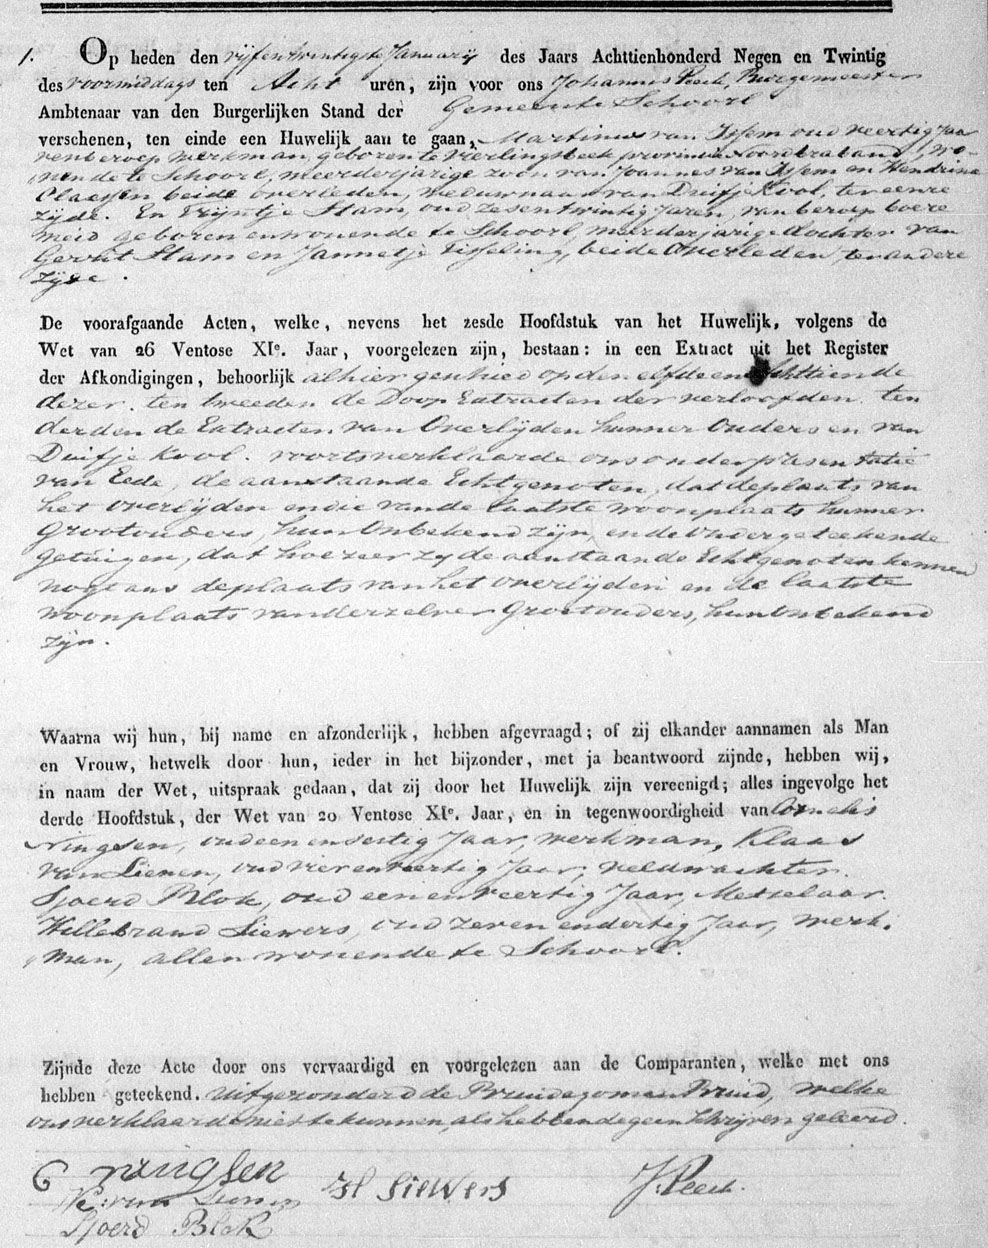 1. Op heden den vijfentwintigste Januarij des Jaars Achttienhonderd Negen en Twintig
des voormiddags ten Acht uren, zijn voor ons Johannis Peech, Burgemeester
Ambtenaar van den Burgerlijken Stand der Gemeente Schoorl
verschenen, ten einde een Huwelijk aan te gaan, Martinus van Issem oud veertig Jaa
ren beroep werkman, geboren te Vierlingsbeek provintie Noordbraband, wo-
nende te Schoorl, meerderjarige zoon van Joannes van Issem en Hendrina
Claessen beide overleden, weduwnaar van Duifje Kool, ter eenre
zijde. En Trijntje Stam, oud zesentwintig Jaren, van beroep boere
meid geboren en wonende te Schoorl, meerderjarige dochter van
Gerrit Stam en Jannetje Tisseling, beide Overleden, ter andere
zijde.
De voorafgaande Acten, welke, nevens het zesde Hoofdstuk van het Huwelijk, volgens de
Wet van 26 Ventose XIe. Jaar, voorgelezen zijn, bestaan: in een Extract uit het Register
der Afkondigingen, behoorlijk alhier geschied op den elfde en Achttiende
dezer. ten tweeden de Doop Extracten der verloofden. ten
derden de Extracten van Overlijden hunner Ouders en van
Duifje Kool. voorts verklaarde ons onder presentatie
van Eede, de aanstaande Echtgenoten, dat de plaats van
het overlijden en die van de laatste woonplaats hunner
Grootouders, hun Onbekend zijn, en de Ondergeteekende
getuigen, dat hoezeer zij de aanstaande Echtgenoten kennen
nogtans de plaats van het overlijden en de laatste
woonplaats van derzelver Grootouders, hun Onbekend
zijn.
Waarna wij hun, bij name en afzonderlijk, hebben afgevraagd; of zij elkander aannamen als Man
en Vrouw, hetwelk door hun, ieder in het bijzonder, met ja beantwoord zijnde, hebben wij,
in naam der Wet, uitspraak gedaan, dat zij door het Huwelijk zijn vereenigd; alles ingevolge het
derde Hoofdstuk, der Wet van 20 Ventose XIe. Jaar, en in tegenwoordigheid van Cornelis
Ringsen, oud een en sestig Jaar, werkman, Klaas
van Lienen, oud vier en veertig Jaar, veldwachter.
Sjoerd Blok, oud een en veertig Jaar, Metselaar.
Hillebrand Siewers, oud zeven en dertig Jaar, werk.
man, allen wonende te Schoorl.
Zijnde deze Acte door ons vervaardigd en voorgelezen aan de Comparanten, welke met ons
hebben geteekend. uitgezonderd de Bruidegom en Bruid, welke
ons verklaarde niet te kunnen, als hebbende geen schrijven geleerd.
C ringsen
K: van Lienen H Siewers J. Peech.
Sjoerd Blok